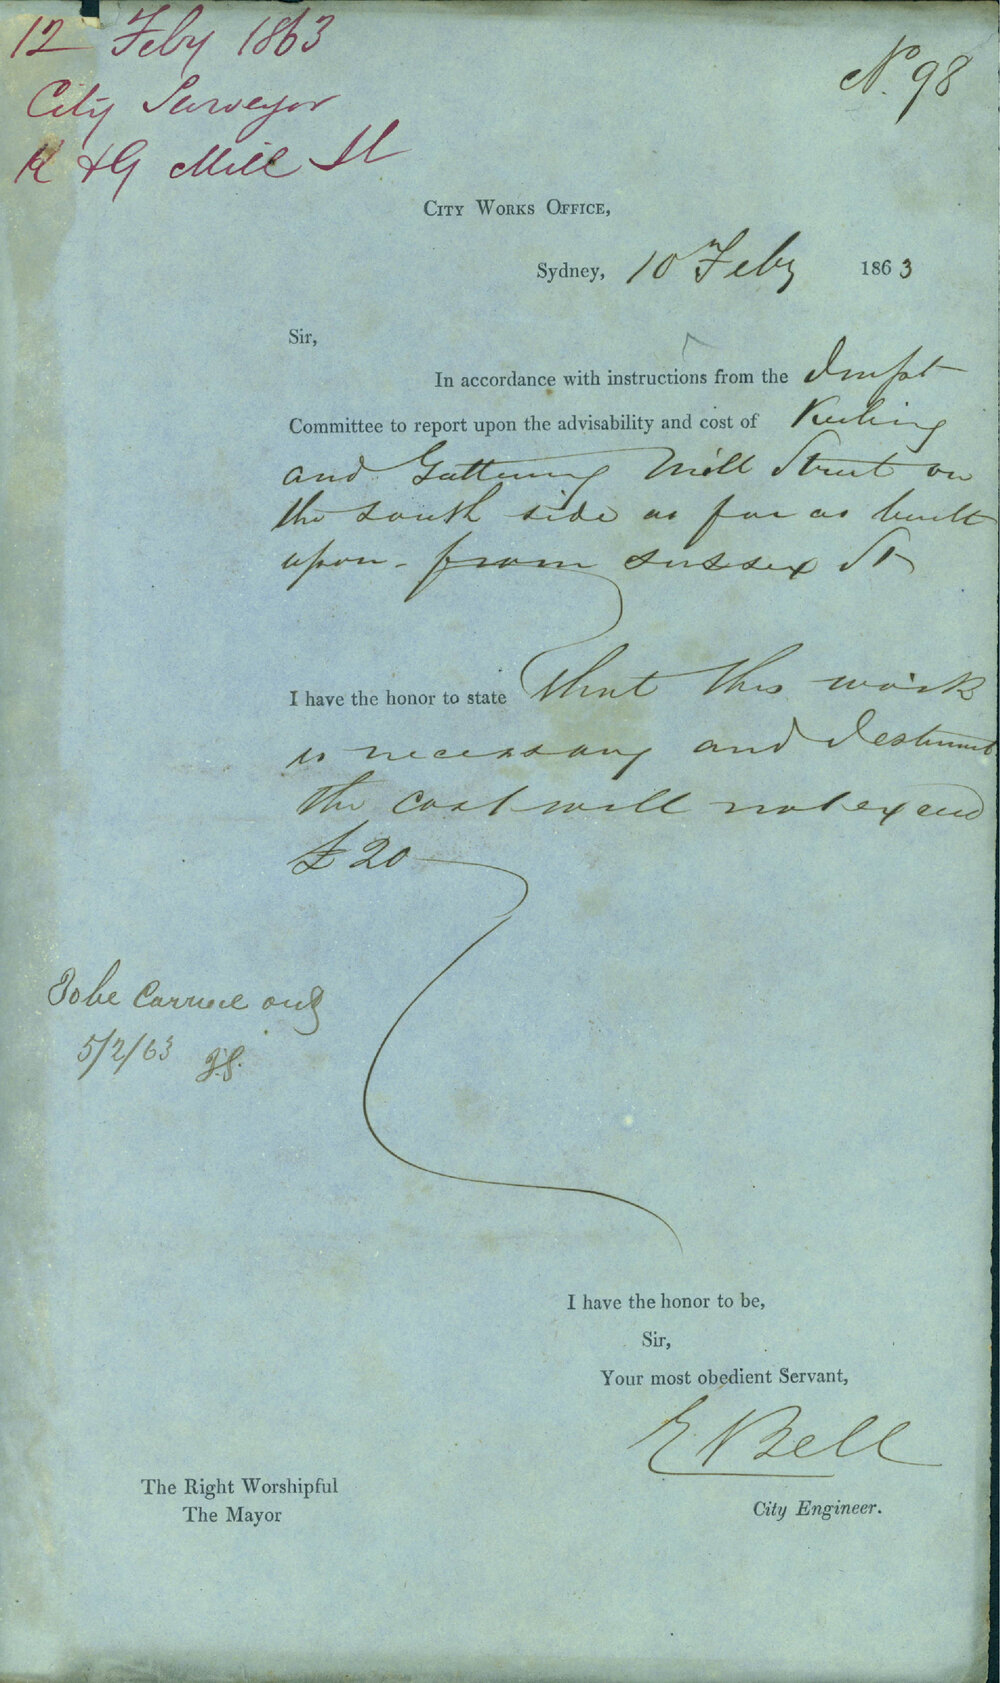 12 Feby 1863
City Surveyor
K & G Mill St
No. 98
CITY WORKS OFFICE,
Sydney, 10 Feby 1863
Sir,
In accordance with instructions from the Impt
Committee to report upon the advisability and cost of Kerbing
and Guttering Mill Street on
the south side as far as built
upon - from Sussex St
I have the honor to state that this work
is necessary and I estimate
the cost will not exceed
£20
To be Carried out
5/2/63 J.S.
I have the honor to be,
Sir,
Your most obedient Servant,
E Bell
City Engineer.
The Right Worshipful
The Mayor